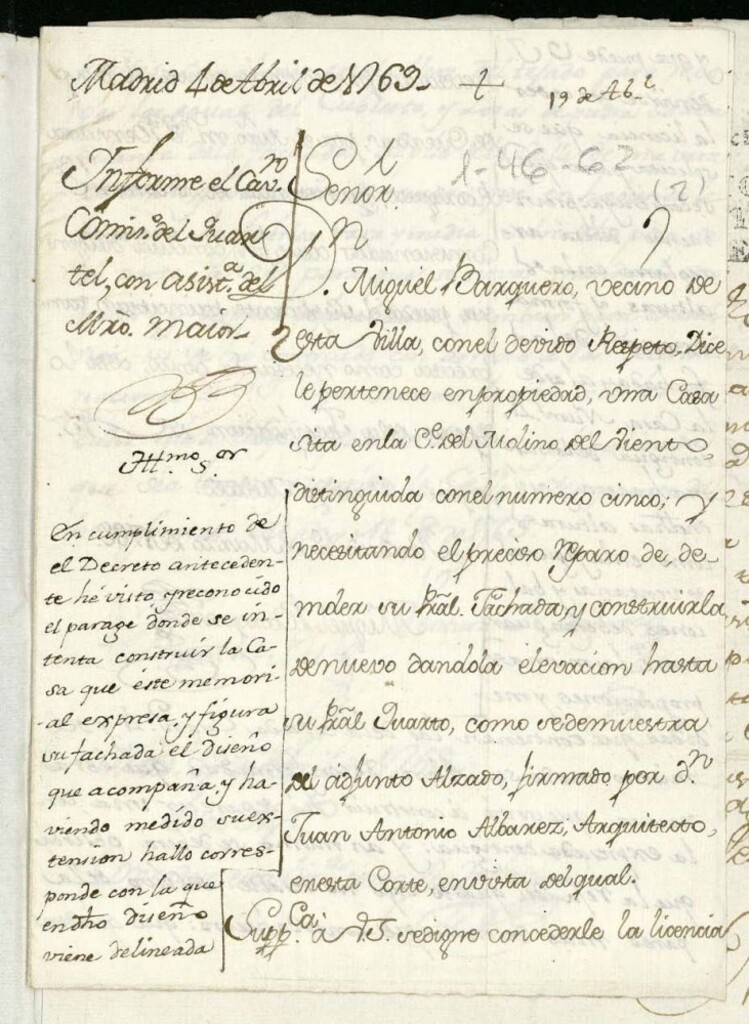 Madrid 4 de Abril de 1769
19 de Ab.l
1-46-62
(2)
Informe el Cav.ro
Comis.o del Quar
tel, con asist.a del
Mro. maior
Ill.mo S.or
En cumplimiento de
el Decreto anteceden-
te hé visto, y reconocido
el parage donde se in-
tenta construir la Ca-
sa que este memori-
al expresa, y figura
su fachada el diseño
que acompaña, y ha-
viendo medído su ex-
tension hallo corres-
ponde con la que
en dho diseño
viene delineada
Señor
D.n Miguel Barquero, vecino de
esta Villa, con el devido Respeto, Dice
le pertenece en propiedad, una Casa
sita en la C.e del Molino del Viento,
distinguida con el numero cinco; y
necesitando el preciso Reparo de, de-
moler su pral. Fachada y construirla
de nuevo dandola elevacion hasta
su pral Quarto, como se demuestra
del adjunto Alzado, firmado por d.n
Juan Antonio Albarez, Arquitecto,
en esta Corte, en vista del qual.
Supp.ca a V.S. se digne concederle la licencia